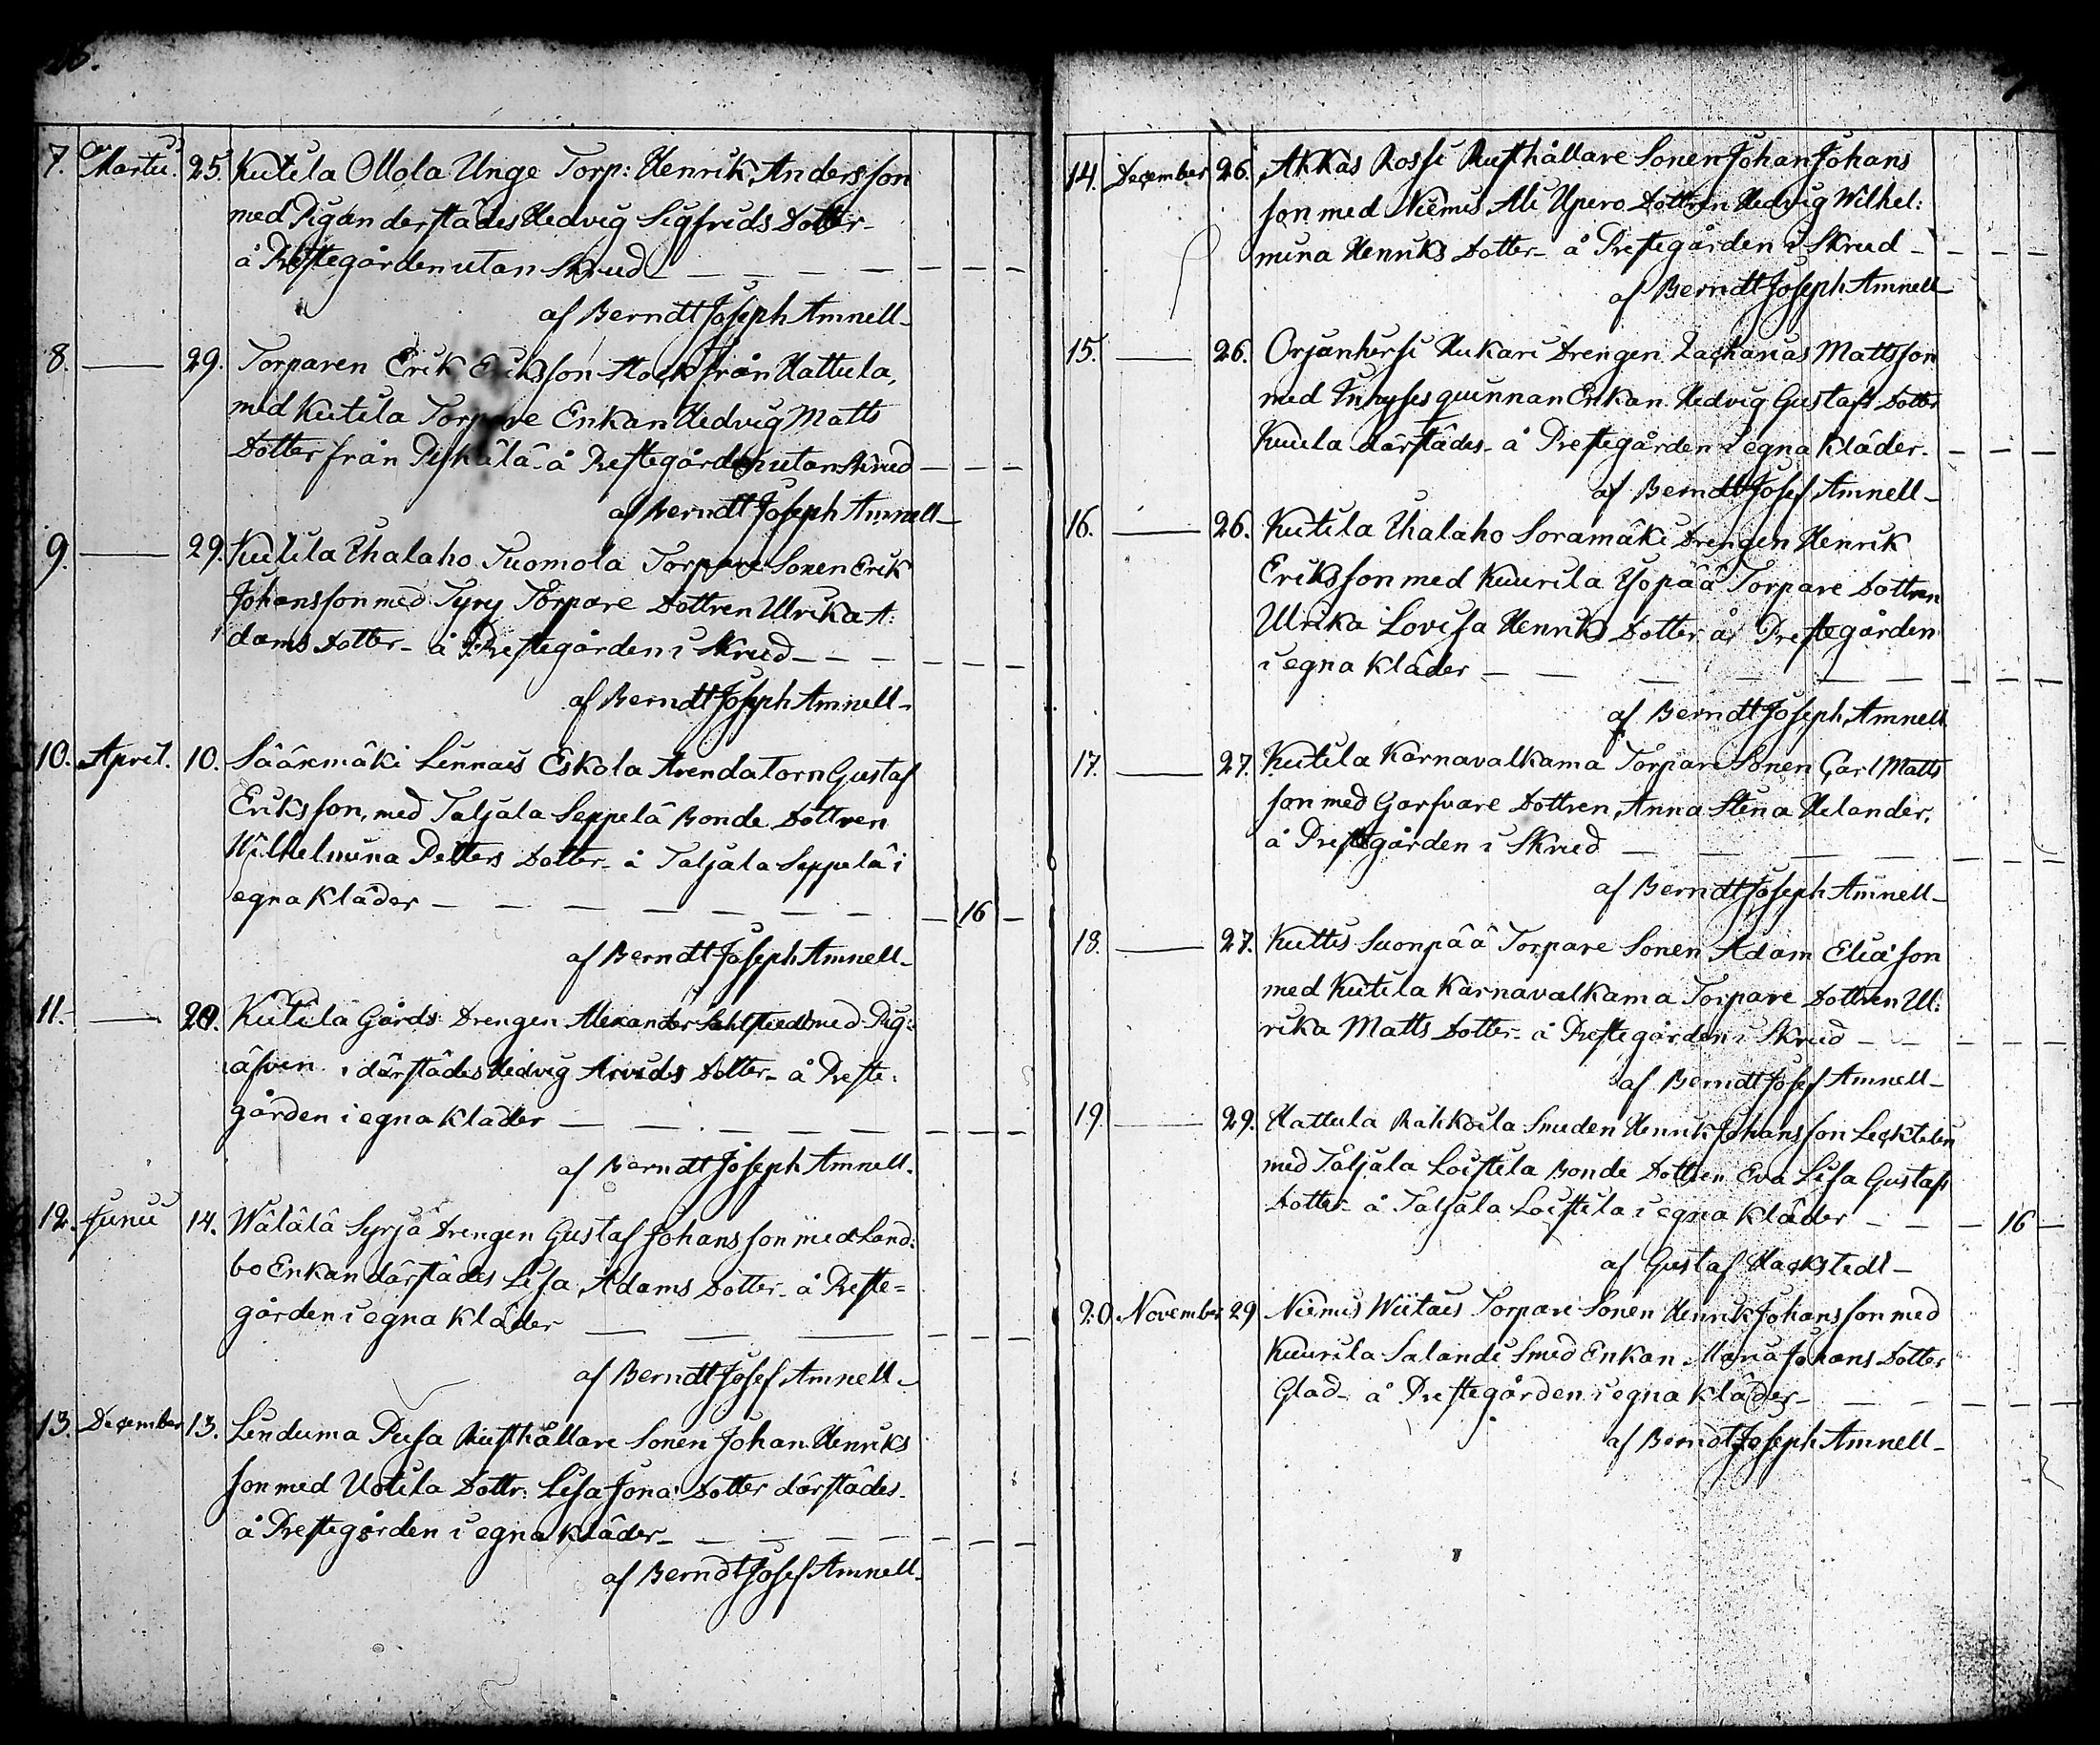 7. Martii. 25. Kutila Ollola Unge Torp: Henrik Andersson
med Pigan derstädes Hedvig Sigfreds Dotter-
å Prestegården utan Skrud
af Berndt Joseph Amnell-
8. 29. Torparen Erik Eriksson från Hattula,
med Kutila Torpare Enkan Hedvig Matts
Dotter från Piskälä- å Prestegården utan Skrud
af Berndt Joseph Amnell-
9. 29. Kutila Uhalaho Tuomola Torpare Sonen Erik
Johansson med Tyry Torpare Dottren Ulrika A:
dams Dotter- å Prestegården i Skrud
af Berndt Joseph Amnell-
10. April. 10. Sääxmäki Linnais Eskola Arendatorn Gustaf
Eriksson, med Taljala Seppelä Bonde Dottren
Wilhelmina Petters Dotter- å Taljala Seppelä i
egna Kläder 16
af Berndt Joseph Amnell-
11. Kutila Gårds Drengen Alexander med Pig:
i därstädes Hedvig Arvids Dotter- å Preste:
gården i egna Kläder
af Berndt Joseph Amnell.
12. Junii 14. Wälälä Syrjä Drengen Gustaf Johansson med Land:
bo Enkan därstädes Lisa Adams Dotter- å Preste=
gården i egna Kläder
af Berndt Josef Amnell-
13. December 13. Linduma Pusa Rusthållare Sonen Johan Henriks
son med Uotila Dottr: Lisa Jona Dotter därstädes-
å Prestegården i egna Kläder-
af Berndt Josef Amnell-
14. December 26. Akkas Rossi Rusthållare Sonen Johan Johans
son med Niemis Ali Upero Dottren Hedvig Wilhel:
mina Henriks Dotter- å Prestegården i Skrud
af Berndt Joseph Amnell-
15. 26. Orjanhirsi Hukari Drengen Zacharias Mattsson
med Inhyses quinnan Enkan Hedvig Gustafs Dotter
därstädes- å Prestegården i egna Kläder.
af Berndt Josef Amnell-
16. 26. Kutila Uhalaho Soramäki Drengen Henrik
Eriksson med Kuurila Yopää Torpare Dottren
Ulrika Lovisa Henriks Dotter å Prestegården
i egna Kläder
af Berndt Joseph Amnell
17. 27. Kutila Karnavalkama Torpare Sonen Carl Matts
son med Garfvare Dottren Anna Stina Helander.
å Prestegården i Skrud
af Berndt Joseph Amnell-
18. 27. Kuttis Suonpää Torpare Sonen Adam Elia son
med Kutila Karnavalkama Torpare Dottren Ul:
rika Matts Dotter- å Prestegården i Skrud
af Berndt Josef Amnell-
19. 29. Hattula Rahkoila Smeden Henrik Johansson
med Taljala Loistila Bonde Dottren Eva Lisa Gustafs
Dotter- å Taljala Loistila i egna Kläder 16
af Gustaf Hackstedt-
20. November 29 Niemis Wiitais Torpare Sonen Henrik Johansson med
Kuurila Salandi Smed Enkan Maria Johans Dotter
Glad- å Prestegården i egna Kläder-
af Berndt Joseph Amnell-